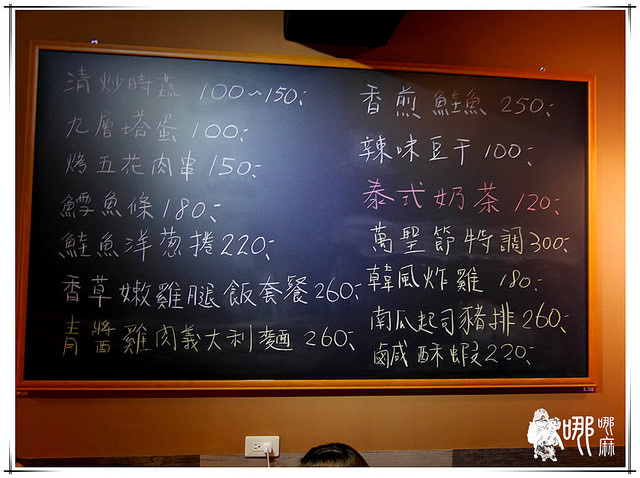 清炒時蔬 100~150.-
九層塔蛋 100.-
烤五花肉串 150.-
鱈魚條 180.-
鮭魚洋蔥捲 220.-
香草嫩雞腿飯套餐 260.-
青醬雞肉義大利麵 260.-
香煎鮭魚 250.-
辣味豆干 100.-
泰式奶茶 120.-
萬聖節特調 300.-
韓風炸雞 180.-
南瓜起司豬排 260.-
鹹酥蝦 220.-
哪哪麻